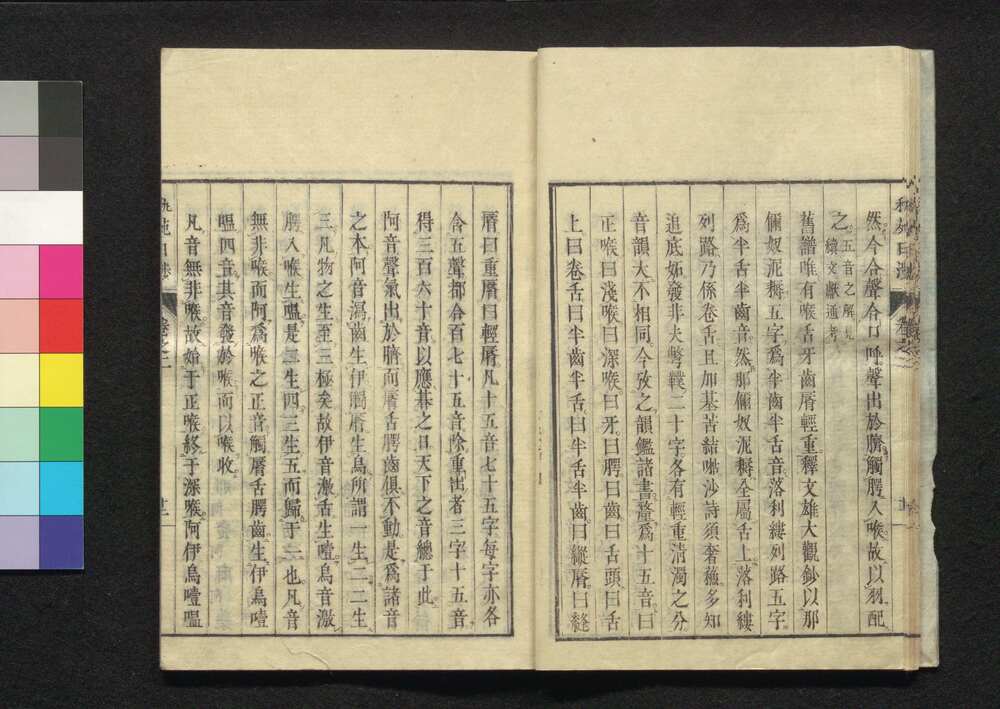 然今合聲合口呼聲出於臍觸腭入喉故以羽配
之五音之解見
續文獻通考
舊譜唯有喉舌牙齒脣輕重釋文雄大觀鈔以那
儞奴泥耨五字爲半齒半舌音落利縷列路五字
爲半舌半齒音然那儞奴泥耨全屬舌上落利縷
列路乃係卷舌且加基苦結 沙詩須奢蘓多知
追底妬發非夫弊 二十字各有輕重淸濁之分
音韻大不相同今攷之韻鑑諸書 爲十五音曰
正喉曰淺喉曰深喉曰牙曰腭曰齒曰舌頭曰舌
上曰卷舌曰半齒半舌曰半舌半齒曰縱脣曰
脣曰重脣曰輕脣凡十五音七十五字每字亦各
含五聲都合百七十五音除重出者三字十五音
得三百六十音以應朞之日天下之音總于此
阿音聲氣出於臍而脣舌腭齒俱不動是爲諸音
之本阿音瀉齒生伊觸脣生烏所謂一生二二生
三凡物之生至三極矣故伊音激舌生噎烏音激
腭入喉生嗢是三生四三生五而歸于一也凡音
無非喉而阿爲喉之正音觸脣舌腭齒生伊烏噎
嗢四音其音發於喉而以喉收
凡音無非喉故始于正喉終于深喉阿伊烏噎嗢